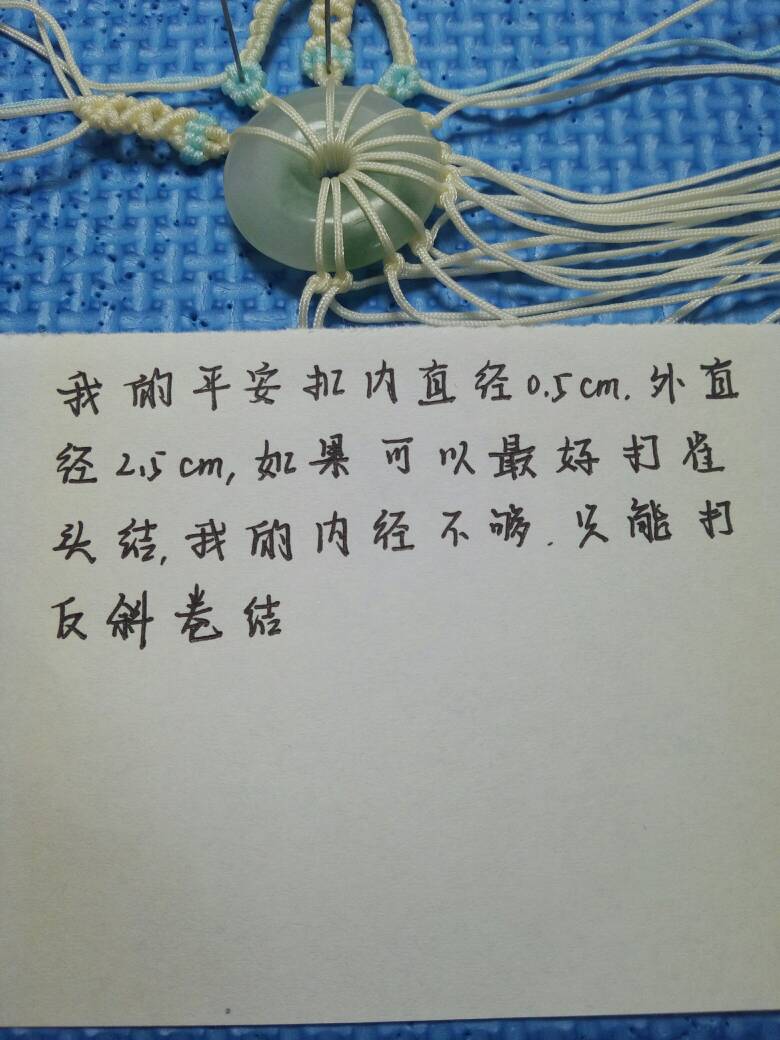 我的平安扣内直径0.5cm.外直
径2.5cm,如果可以最好打雀
头结,我的内径不够.只能打
反斜卷结